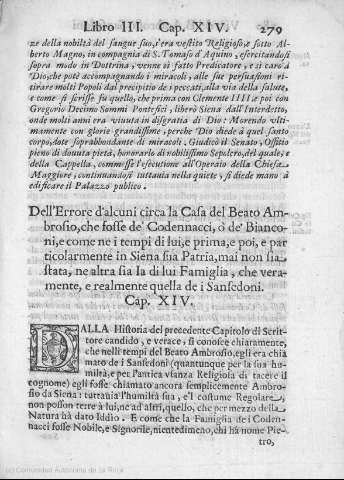 Libro III. Cap. XIV. 279
ze della nobiltà del sangue suo, s'era vestito Religioso, e sotto Al-
berto Magno, in compagnia di S. Tomaso d'Aquino, esercitandosi
sopra modo in Dottrina, venne sì fatto Predicatore, e sì caro à
Dio, che potè accompagnando i miracoli, alle sue persuasioni ri-
tirare molti Popoli dal precipitio de i peccati, alla via della salute,
e come si scrisse fu quello, che prima con Clemente IIII. e poi con
Gregorio Decimo Sommi Pontefici, liberò Siena dall'Interdetto,
onde molti anni era vivuta in disgratia di Dio: Morendo ulti-
mamente con glorie grandissime, perche Dio diede à quel santo
corpo, dote soprabbondante di miracoli. Giudicò il Senato, Ossitio
pieno di dovuta pietà, honorarlo di nobilissimo Sepolcro, del quale, e
della Cappella, commesse l'esecutione all'Operaio della Chiesa
Maggiore; continuandosi tuttavia nella quiete, si diede mano à
edificare il Palazzo publico.
Dell'Errore d'alcuni circa la Casa del Beato Am-
brosio, che fosse de' Codennacci, ò de' Bianco-
ni, e come ne i tempi di lui, e prima, e poi, e par
ticolarmente in Siena sua Patria, mai non sia
stata, ne altra sia la di lui Famiglia, che vera-
mente, e realmente quella de i Sansedoni.
Cap. XIV.
DALLA Historia del precedente Capitolo di Scrit-
tore candido, e verace, si conosce chiaramente,
che nelli tempi del Beato Ambrosio, egli era chia
mato de i Sansedoni (quantunque per la sua hu-
miltà, e per l'antica usanza Religiosa di tacere il
cognome) egli fosse chiamato ancora semplicemente Ambro-
sio da Siena: tuttavia l'humiltà sua, e'l costume Regolare,
non posson torre à lui, ne ad altri, quello, che per mezzo della
Natura hà dato Iddio. E come che la Famiglia de i Coden-
nacci fosse Nobile, e Signorile, nientedimeno, chi hà nome Pie-
tro,
(c) Comunidad Autónoma de La Rioja